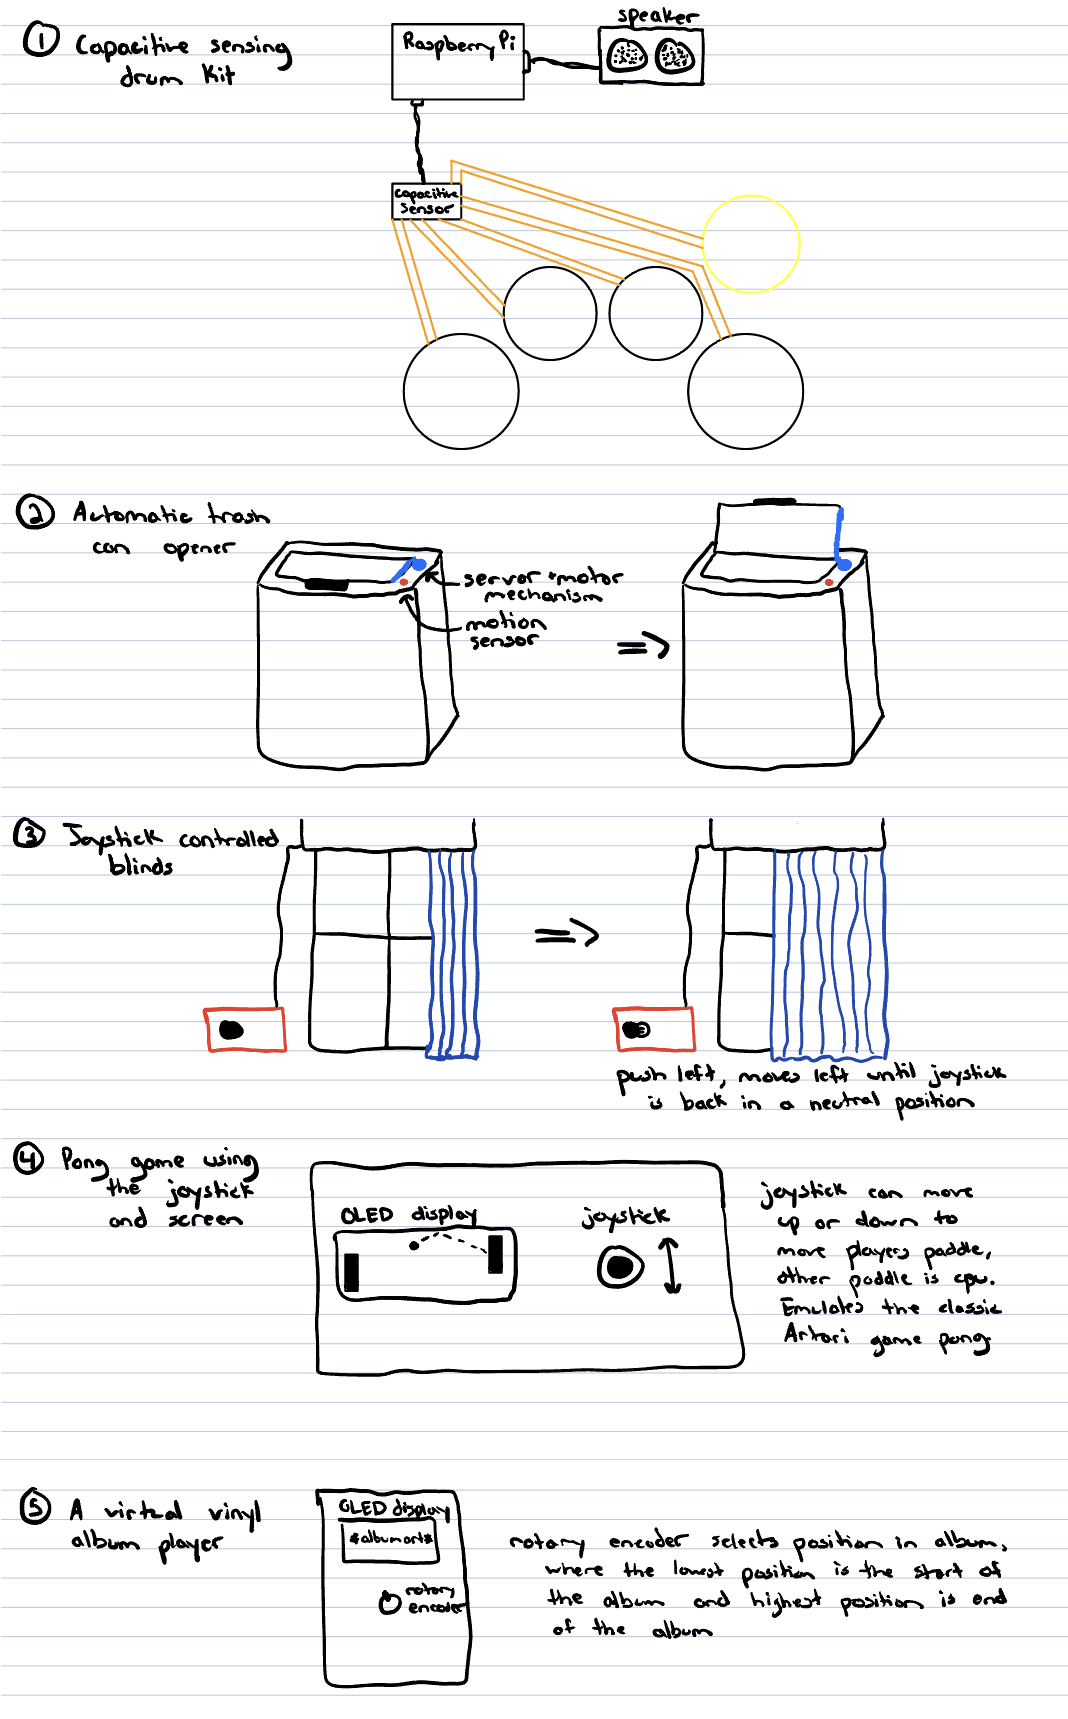 ① Capacitive sensing
drum kit
Raspberry Pi
speaker
Capacitive
Sensor
② Automatic trash
can opener
server + motor
mechanism
motion
sensor
③ Joystick controlled
blinds
push left, moves left until joystick
is back in a neutral position
④ Pong game using
the joystick
and screen
OLED display
joystick
joystick can move
up or down to
move players paddle,
other paddle is cpu.
Emulates the classic
Artari game pong.
⑤ A virtual vinyl
album player
OLED display
*album art*
rotary
encoder
rotary encoder selects position in album,
where the lowest position is the start of
the album and highest position is end
of the album